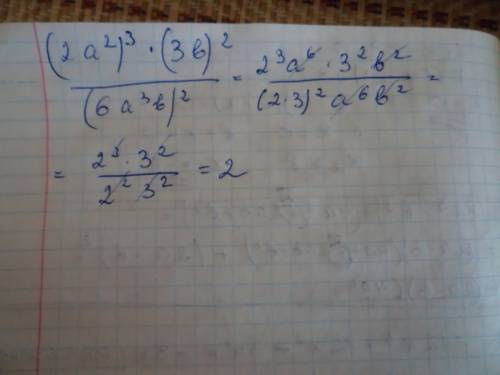 (2a²)³ · (3b)² / (6a³b)² = 2³a⁶ · 3²b² / (2·3)²a⁶b² =
= 2³ · 3² / 2² 3² = 2